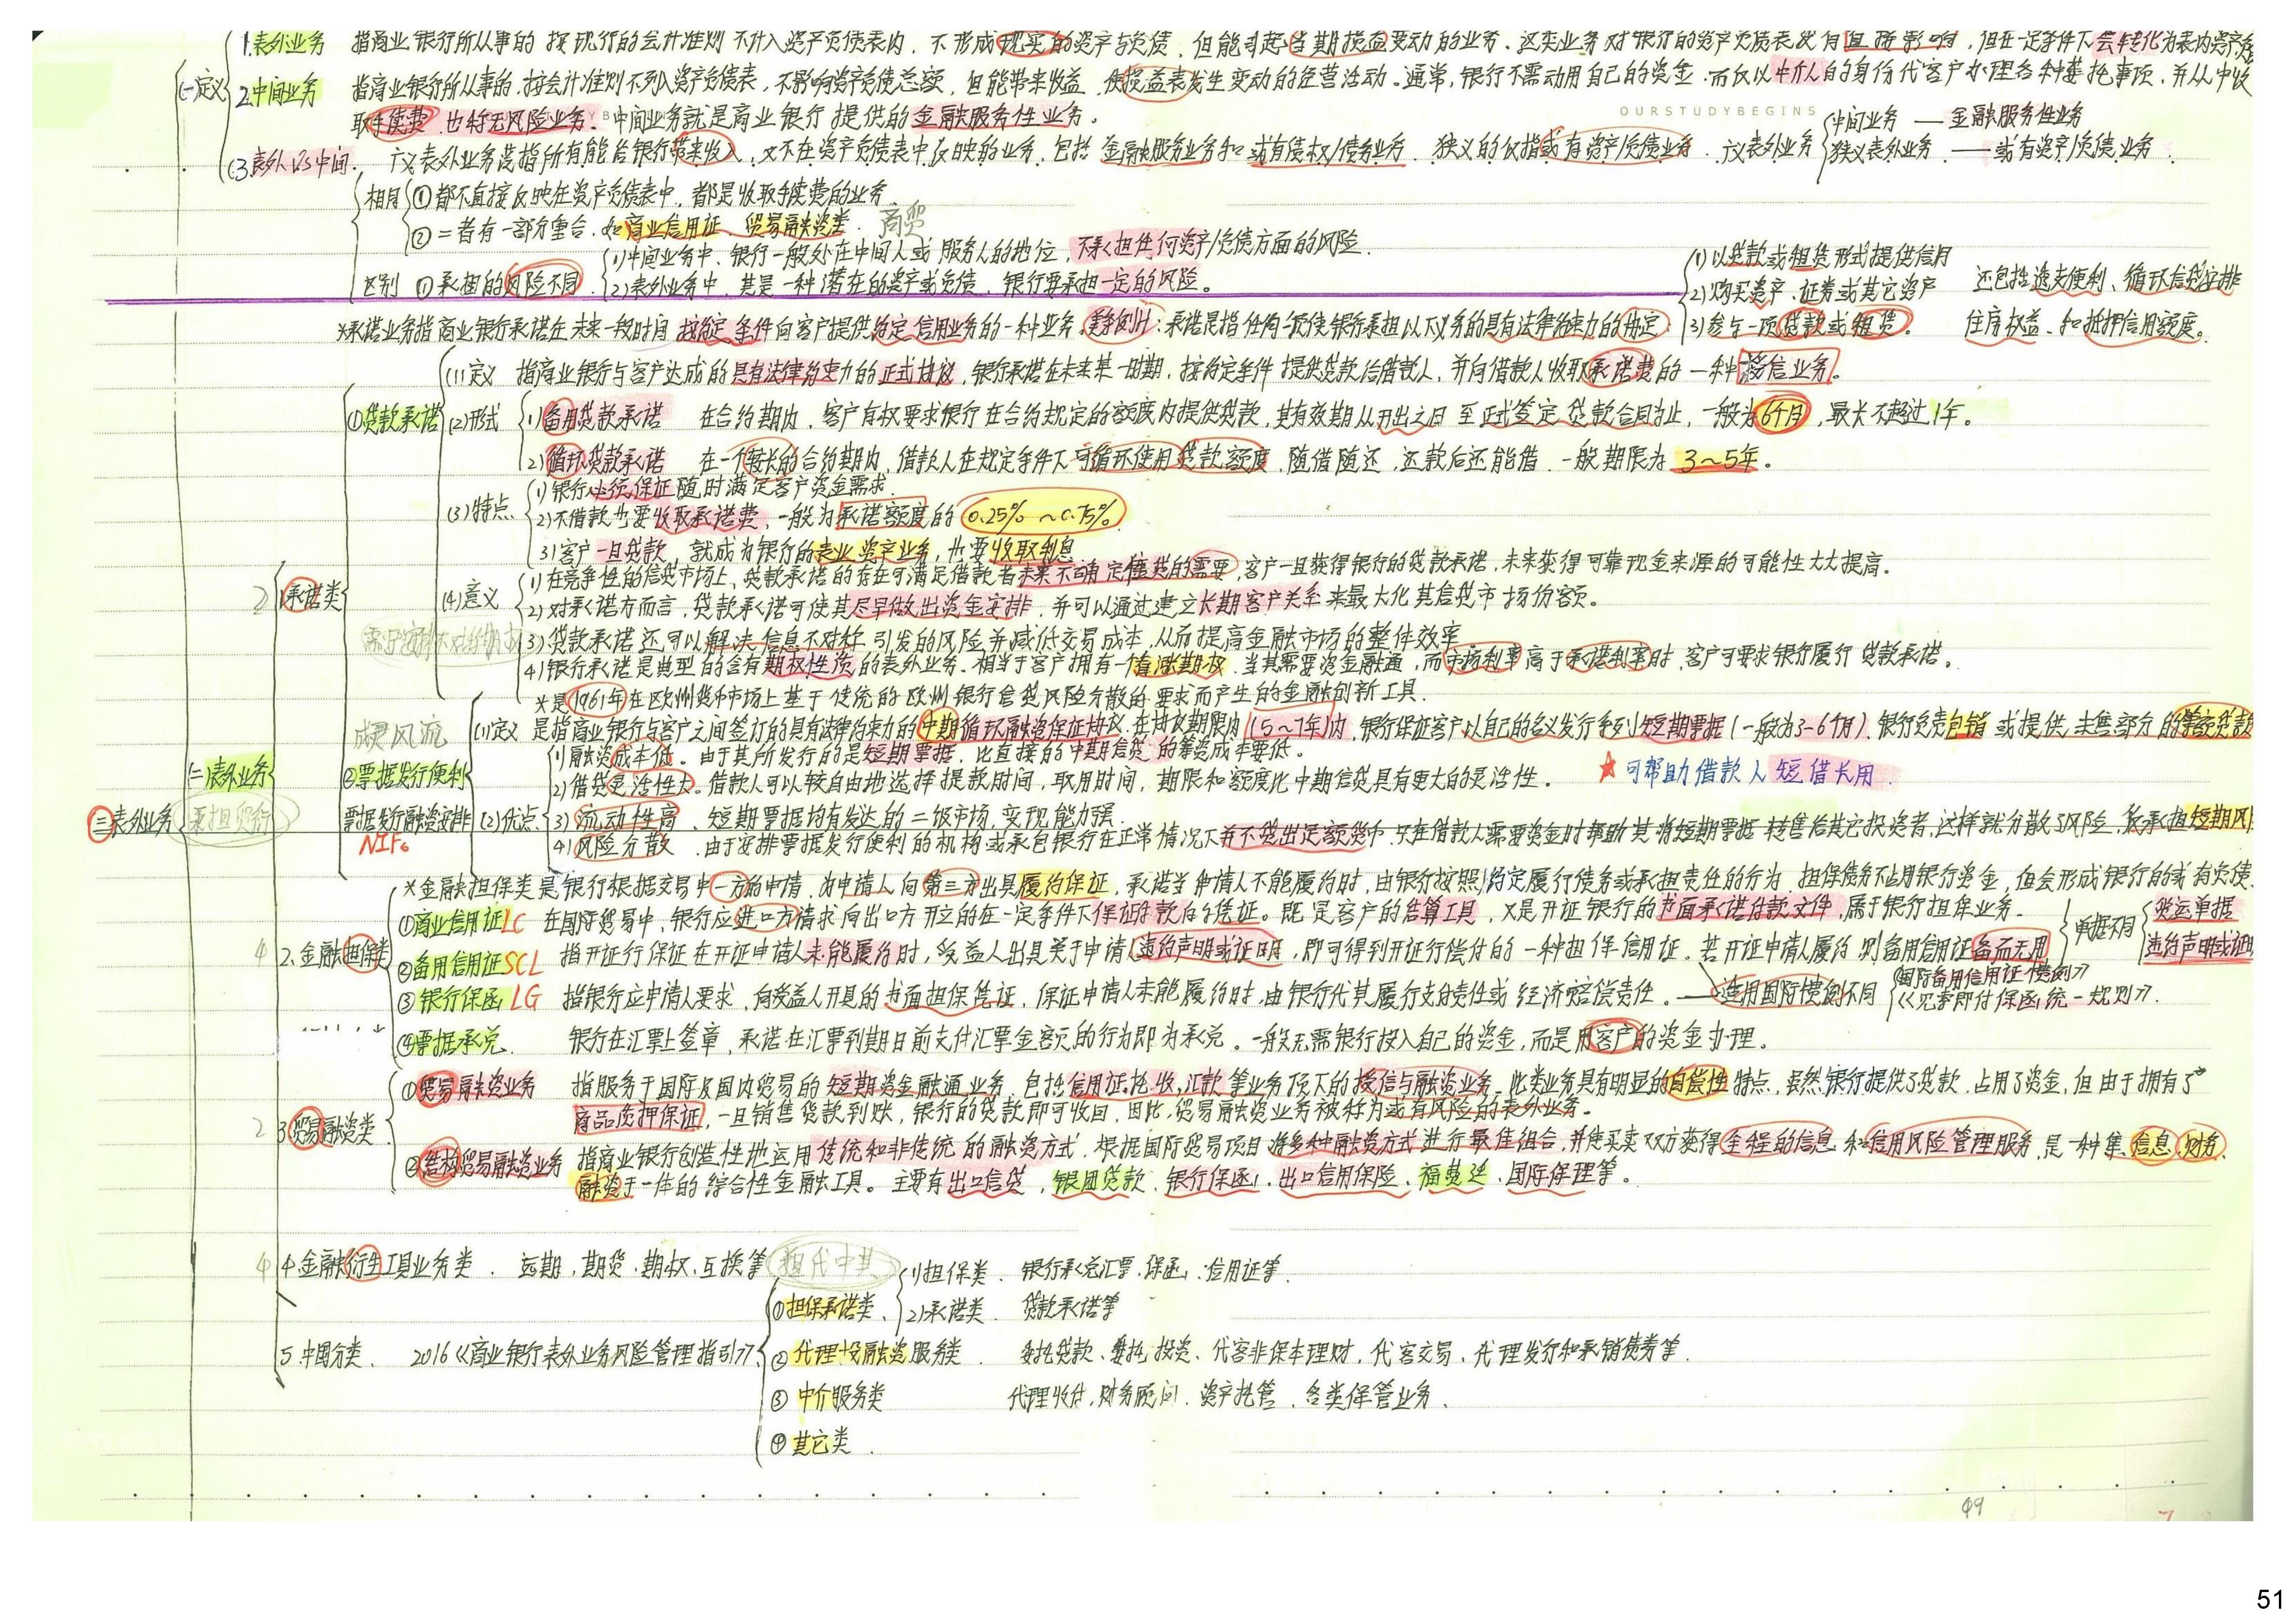 1.表外业务 指商业银行所从事的 按现行的会计准则 不计入资产负债表内，不形成现实的资产与负债，但能引起当期损益变动的业务。这类业务对银行的资产负债表没有直接影响，但在一定条件下会转化为表内资产负
(一)定义 2.中间业务 指商业银行所从事的，按会计准则不列入资产负债表，不影响资产负债总额，但能带来收益，使损益表发生变动的经营活动。通常，银行不需动用自己的资金，而仅以中介人的身份代客户办理各种委托事项，并从中收
取手续费，也称无风险业务。中间业务就是商业银行提供的金融服务性业务。
OURSTUDYBEGINS
中间业务 — 金融服务性业务
(3)表外VS中间. 广义表外业务是指所有能给银行带来收入，又不在资产负债表中反映的业务，包括 金融服务业务和或有债权/债务业务. 狭义的仅指或有资产/负债业务. 广义表外业务 狭义表外业务 — 或有资产/负债业务.
相同 ①都不直接反映在资产负债表中，都是收取手续费的业务
②二者有一部分重合，如商业信用证、贸易融资类. 商贸
区别 ①承担的风险不同 1)中间业务中，银行一般处在中间人或服务人的地位，不承担任何资产/负债方面的风险.
2)表外业务中，其是一种潜在的资产或负债，银行要承担一定的风险。
(1)以贷款或租赁形式提供信用
2)购买资产、证券或其它资产 还包括透支便利、循环信贷安排
*承诺业务指商业银行承诺在未来一段时间 按约定条件向客户提供约定信用业务的一种业务。美会计：承诺是指任何一项使银行承担以下义务的具有法律约束力的协定： 3)参与一项贷款或租赁。 住房权益、和抵押信用额度。
①贷款承诺 (1)定义 指商业银行与客户达成的具有法律约束力的正式协议，银行承诺在未来某一时期，按约定条件提供贷款给借款人，并向借款人收取承诺费的一种授信业务。
(2)形式 1)备用贷款承诺 在合约期内，客户有权要求银行在合约规定的额度内提供贷款，其有效期从开出之日至正式签定贷款合同为止，一般为6个月，最长不超过1年。
2)循环贷款承诺 在一个较长的合约期内，借款人在规定条件下可循环使用贷款额度，随借随还，还款后还能借，一般期限为3～5年。
(3)特点 1)银行必须保证随时满足客户资金需求
2)不借款也要收取承诺费，一般为承诺额度的0.25%～0.75%
3)客户一旦贷款，就成为银行的表业资产业务，也要收取利息
2 1.承诺类 (4)意义 1)在竞争性的信贷市场上，贷款承诺的存在可满足借款者未来不确定信贷的需要，客户一旦获得银行的贷款承诺，未来获得可靠现金来源的可能性大大提高。
2)对承诺方而言，贷款承诺可使其尽早做出资金安排，并可以通过建立长期客户关系来最大化其信贷市场份额。
3)贷款承诺还可以解决信息不对称引发的风险并减低交易成本，从而提高金融市场的整体效率
4)银行承诺是典型的含有期权性质的表外业务. 相当于客户拥有一个看涨期权，当其需要资金融通，而市场利率高于承诺利率时，客户可要求银行履行贷款承诺。
*是1961年在欧洲货币市场上基于传统的欧洲银行信贷风险分散的要求而产生的金融创新工具.
成灵风流
②票据发行便利 (1)定义 是指商业银行与客户之间签订的具有法律约束力的中期循环融资保证协议. 在协议期限内(5～7年)内，银行保证客户以自己的名义发行系列短期票据(一般为3-6个月)，银行负责包销或提供未售部分的等额贷款
票据发行融资安排 NIFs (2)优点 1)融资成本低。由于其所发行的是短期票据，比直接的中期信贷的筹资成本要低。
2)借贷灵活性大。借款人可以较自由地选择提款时间，取用时间，期限和额度比中期信贷具有更大的灵活性。 ★可帮助借款人短借长用
3)流动性高，短期票据均有发达的二级市场，变现能力强.
4)风险分散，由于安排票据发行便利的机构或承包银行在正常情况下并不贷出足额货币，只在借款人需要资金时帮助其将短期票据转售给其它投资者，这样就分散了风险，仅承担短期风
(二)表外业务 承担贸衍
三 表外业务
*金融担保类是银行根据交易中一方的申请，为申请人向第三方出具履约保证，承诺当申请人不能履约时，由银行按照约定履行债务或承担责任的行为. 担保债务不占用银行资金，但会形成银行的或有负债.
①商业信用证LC 在国际贸易中，银行应进口方请求向出口方开立的在一定条件下保证付款的凭证。既是客户的结算工具，又是开证银行的书面承诺付款文件，属于银行担保业务. 单据不同 货运单据
4 2.金融担保类 ②备用信用证SCL 指开证行保证在开证申请人未能履约时，受益人出具关于申请人违约声明或证明，即可得到开证行偿付的一种担保信用证. 若开证申请人履约，则备用信用证备而无用 违约声明或证
③银行保函LG 指银行应申请人要求，向受益人开具的书面担保凭证，保证申请人未能履约时，由银行代其履行支付责任或经济赔偿责任. — 适用国际惯例不同 《国际备用信用证惯例》
《见索即付保函统一规则》.
④票据承兑. 银行在汇票上签章，承诺在汇票到期日前支付汇票金额的行为即为承兑。一般无需银行投入自己的资金，而是用客户的资金办理。
2 3.贸易融资类 ①贸易融资业务 指服务于国际及国内贸易的短期资金融通业务，包括信用证、托收、汇款等业务项下的授信与融资业务. 此类业务具有明显的自偿性特点，虽然银行提供了贷款，占用了资金，但由于拥有了
商品质押保证，一旦销售货款到账，银行的贷款即可收回，因此，贸易融资业务被称为或有风险的表外业务。
②结构贸易融资业务 指商业银行创造性地运用传统和非传统的融资方式，根据国际贸易项目将多种融资方式进行最佳组合，并使买卖双方获得全程的信息和信用风险管理服务，是一种集信息、财务、
融资于一体的综合性金融工具。主要有出口信贷，银团贷款、银行保函、出口信用保险、福费廷、国际保理等。
4 4.金融衍生工具业务类. 远期、期货、期权、互换等 担代中其
5.中国分类、 2016《商业银行表外业务风险管理指引》 ①担保承诺类、 1)担保类. 银行承兑汇票、保函、信用证等.
2)承诺类. 贷款承诺等
②代理投融资服务类. 委托贷款、委托投资、代客非保本理财，代客交易、代理发行和承销债券等.
③中介服务类 代理收付，财务顾问，资产托管，各类保管业务、
④其它类.
49
51